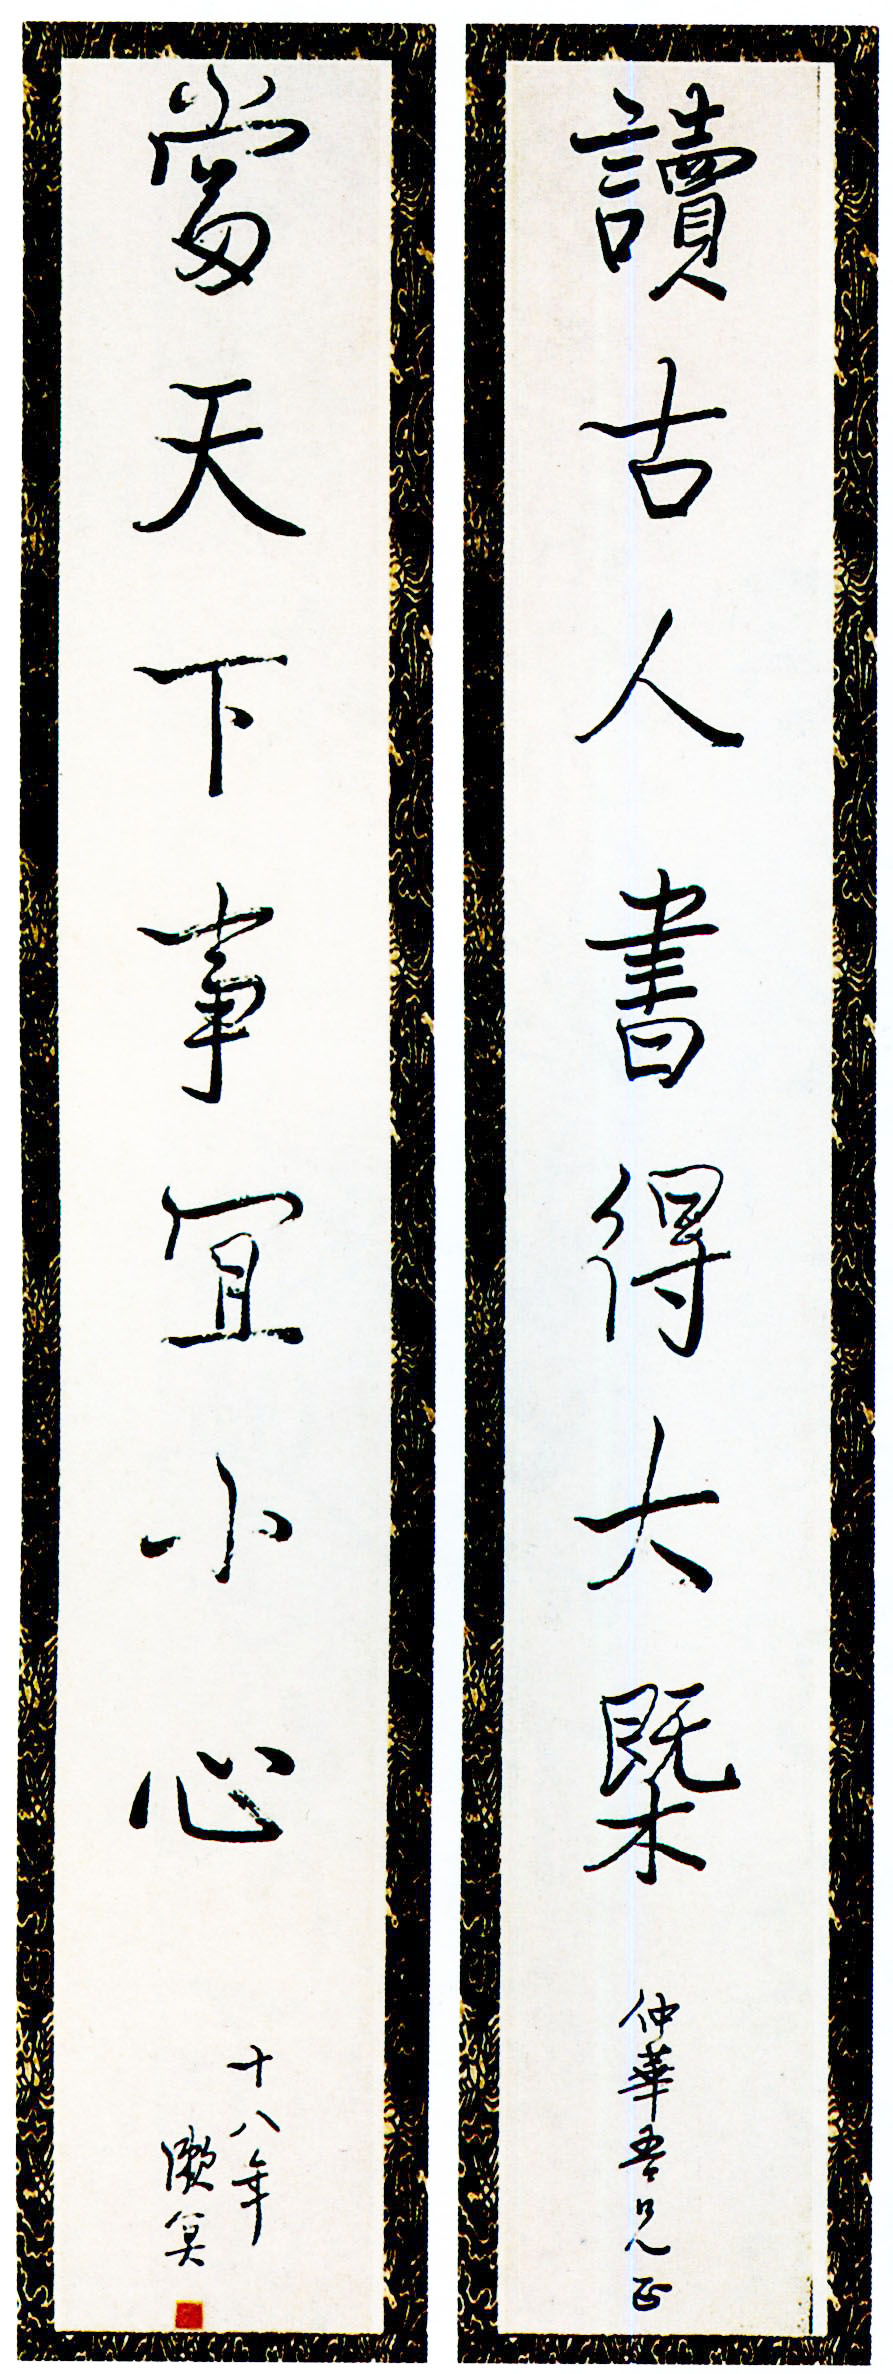 讀古人書得大槩
仲華吾兄正
當天下事宜小心
十八年
漱冥